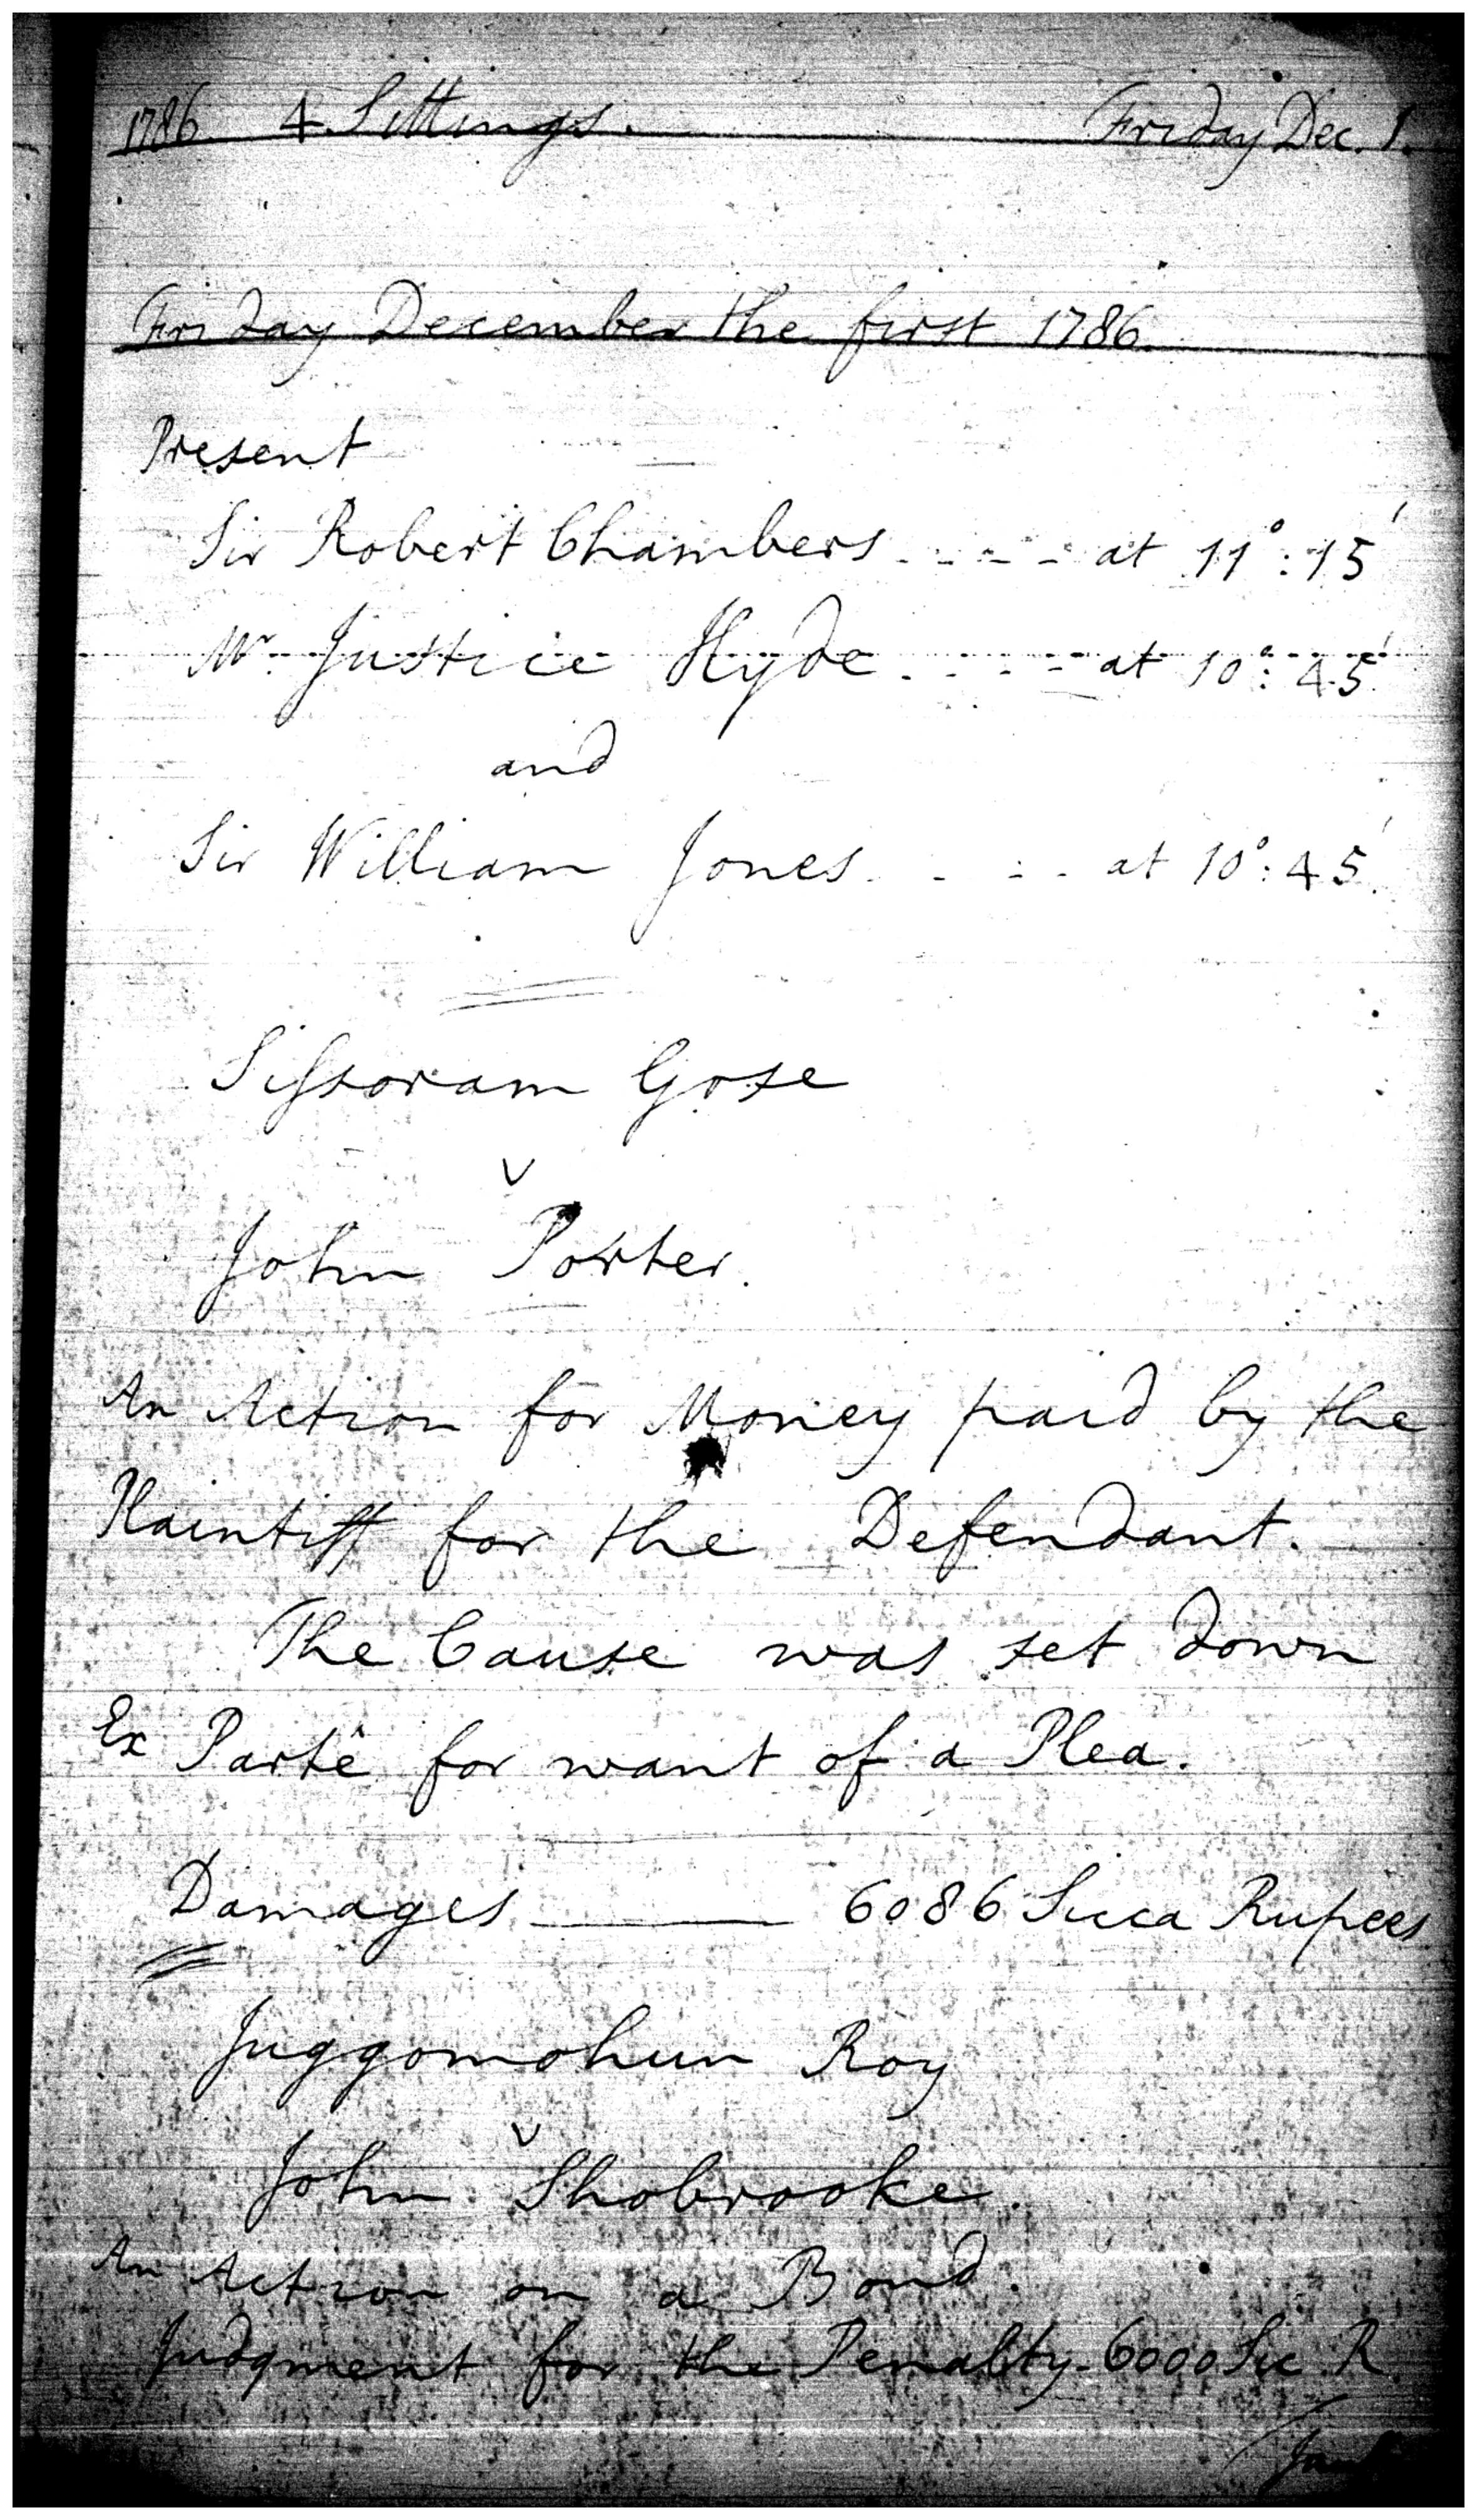 1786 4 Sittings. Friday Dec. 1.
Friday December the first 1786.
Present
Sir Robert Chambers - - - - at 11°: 15'
Mr. Justice Hyde - - - - at 10°: 45'
and
Sir William Jones - - - - at 10°: 45'
Sifsoram Gose
v
John Porter.
An Action for Money paid by the
Plaintiff for the Defendant.
The Cause was set down
Ex Partê for want of a Plea.
Damages ——— 6086 Sicca Rupees
Juggomohun Roy
v
John Shobrooke.
An Action on a Bond.
Judgment for the Penalty - 6000 Sic. R